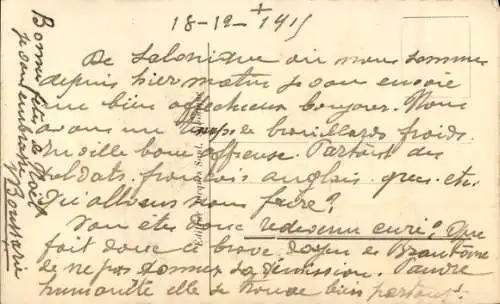 18-12-1915
De Salonique où nous sommes
depuis hier matin je vous envoie
un bien affectueux bonjour. Nous
avons un temps de brouillards froids.
ville boue affreuse. Partout des
soldats français anglais grecs etc.
Qu'allons nous faire?
Vous êtes donc redevenu curé? Que
fait donc ce brave doyen de Brantôme
de ne pas donner sa démission. Pauvre
humanité elle se trouve bien partout.
Bonne fête de Noël
je vous embrasse